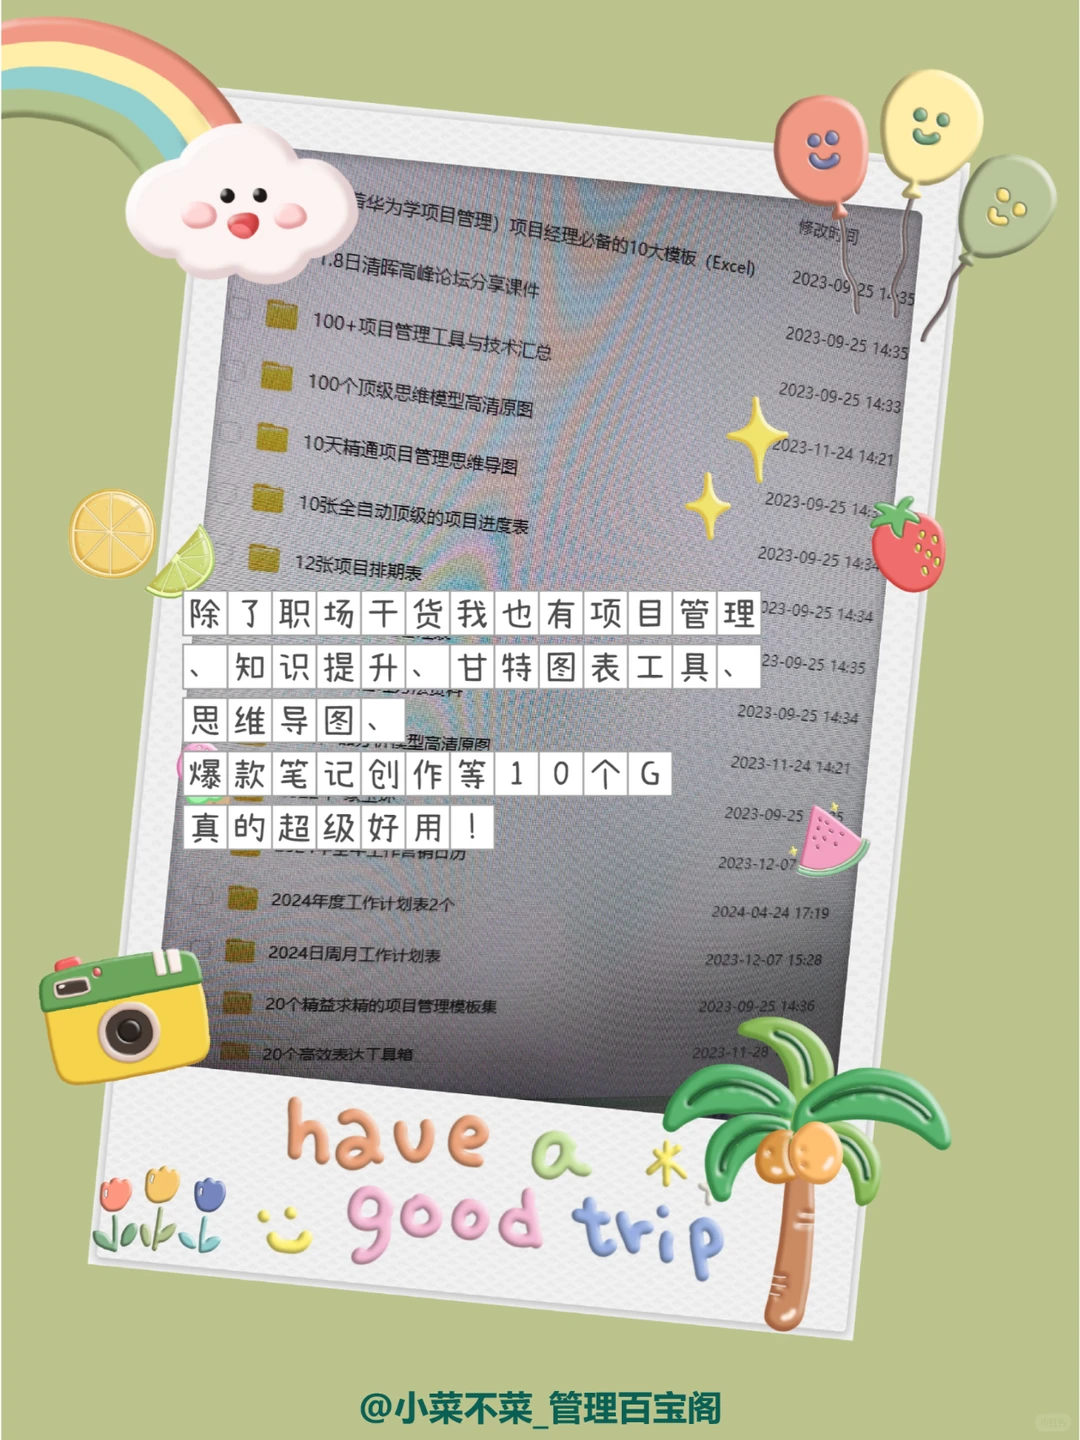 着华为学项目管理）项目经理必备的10大模板（Excel)
修改时间
2023-09-25 14:35
1.8日清晖高峰论坛分享课件
2023-09-25 14:35
100+项目管理工具与技术汇总
2023-09-25 14:33
100个顶级思维模型高清原图
2023-11-24 14:21
10天精通项目管理思维导图
2023-09-25
10张全自动顶级的项目进度表
2023-09-25 14:34
12张项目排期表
2023-09-25 14:34
除了职场干货我也有项目管理
、知识提升、甘特图表工具、
思维导图、
爆款笔记创作等10个G
真的超级好用！
23-09-25 14:35
2023-09-25 14:34
模型高清原图
2023-11-24 14:21
2023-09-25
2023-12-07
2024年度工作计划表2个
2024-04-24 17:19
2024日周月工作计划表
2023-12-07 15:28
20个精益求精的项目管理模板集
2023-09-25 14:36
20个高效表达工具箱
2023-11-28
have a
good trip
@小菜不菜_管理百宝阁